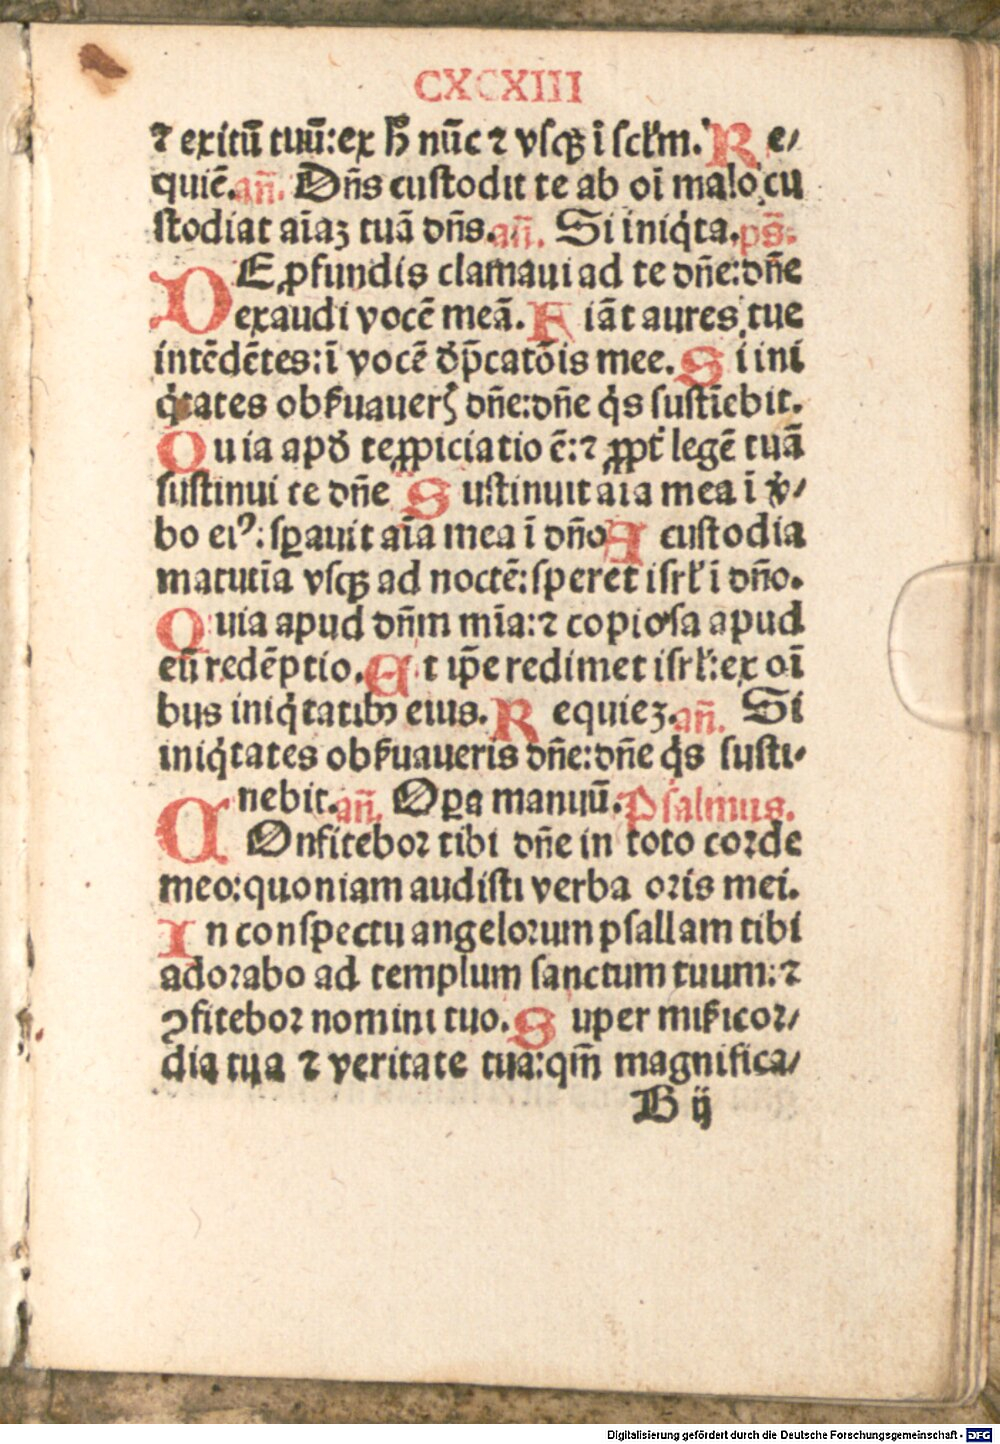 CXCXIII
⁊ exitū tuū:ex hͦ nūc ⁊ vſqꝫ ī ſcl'm. Re/
quiē. añ. Dñs custodit te ab oī malo cu
ſtodiat aīaꝫ tuā dñs. añ. Si iniq̇ta. ps̄.
DE ꝓfundis clamaui ad te dñe:dñe
exaudi vocē meā. Fiāt aures tue
intēdētes:ī vocē dp̄catōis mee. Si ini
q̇tates obſ̓uaueris dñe:dñe q̇s ſuſtīebit.
Quia apd̓ te ꝓpiciatio ē:⁊ ꝓpt̓ legē tuā
ſuſtinui te dñe Sustinuit aīa mea ī v̓/
bo eiꝰ:ſꝑauit aīa mea ī dño A custodia
matutīa vſqꝫ ad noctē:ſperet iſrl̓ ī dño.
Quia apud dñm mīa:⁊ copioſa apud
eū redēptio. Et ip̄e redimet iſrl̓:ex oī
bus iniq̇tatibꝰ eius. Requieꝫ. añ. Si
iniq̇tates obſ̓uaueris dñe:dñe q̇s ſuſti/
nebit. añ. Oꝑa manuū. Psalmus.
COnfitebor tibi dñe in toto corde
meo:quoniam audiſti verba oris mei.
In conſpectu angelorum pſallam tibi
adorabo ad templum ſanctum tuum:⁊
ꝯfitebor nomini tuo. Super miſ̓icor/
dia tua ⁊ veritate tua:qm̄ magnifica/
B ij
Digitalisierung gefördert durch die Deutsche Forschungsgemeinschaft - DFG